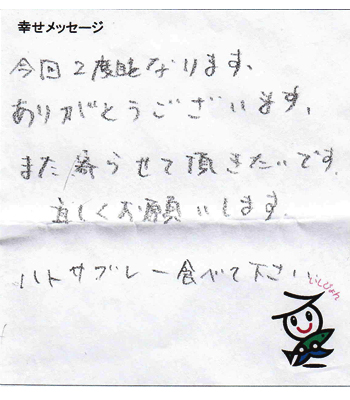 幸せメッセージ
今回2度目なります、
ありがとうございます、
また寄らせて頂きたいです。
宜しくお願いします。
ハトサブレー食べて下さい